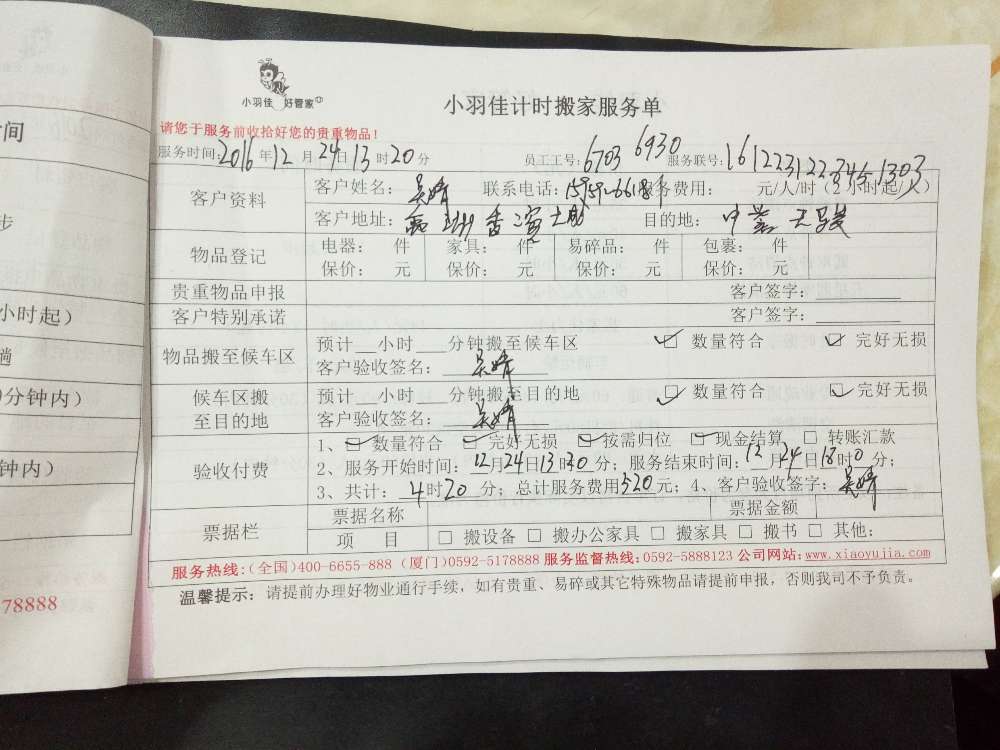 小羽佳 好管家
小羽佳计时搬家服务单
请您于服务前收拾好您的贵重物品!
服务时间:2016年12月24日13时20分 员工工号:6703 6930 服务联号:
客户资料
客户姓名: 吴婷 联系电话: 服务费用: 元/人/时(2小时起/人)
客户地址: 目的地:
物品登记
电器: 件 家具: 件 易碎品: 件 包裹: 件
保价: 元 保价: 元 保价: 元 保价: 元
贵重物品申报 客户签字:
客户特别承诺 客户签字:
物品搬至候车区
预计__小时___分钟搬至候车区 ☑ 数量符合 ☑ 完好无损
客户验收签名: 吴婷
候车区搬
至目的地
预计__小时___分钟搬至目的地 ☑ 数量符合 ☑ 完好无损
客户验收签名: 吴婷
验收付费
1、☑ 数量符合 ☑ 完好无损 ☑ 按需归位 ☑ 现金结算 □ 转账汇款
2、服务开始时间:12月24日13时30分;服务结束时间:12月24日18时0分;
3、共计:4时20分;总计服务费用520元;4、客户验收签字:吴婷
票据栏
票据名称 票据金额
项 目 □ 搬设备 □ 搬办公家具 □ 搬家具 □ 搬书 □ 其他:
服务热线:(全国)400-6655-888 (厦门)0592-5178888 服务监督热线:0592-5888123 公司网站:www.xiaoyujia.com
温馨提示:请提前办理好物业通行手续,如有贵重、易碎或其它特殊物品请提前申报,否则我司不予负责。
时间
步
小时起)
趟
分钟内)
钟内)
78888